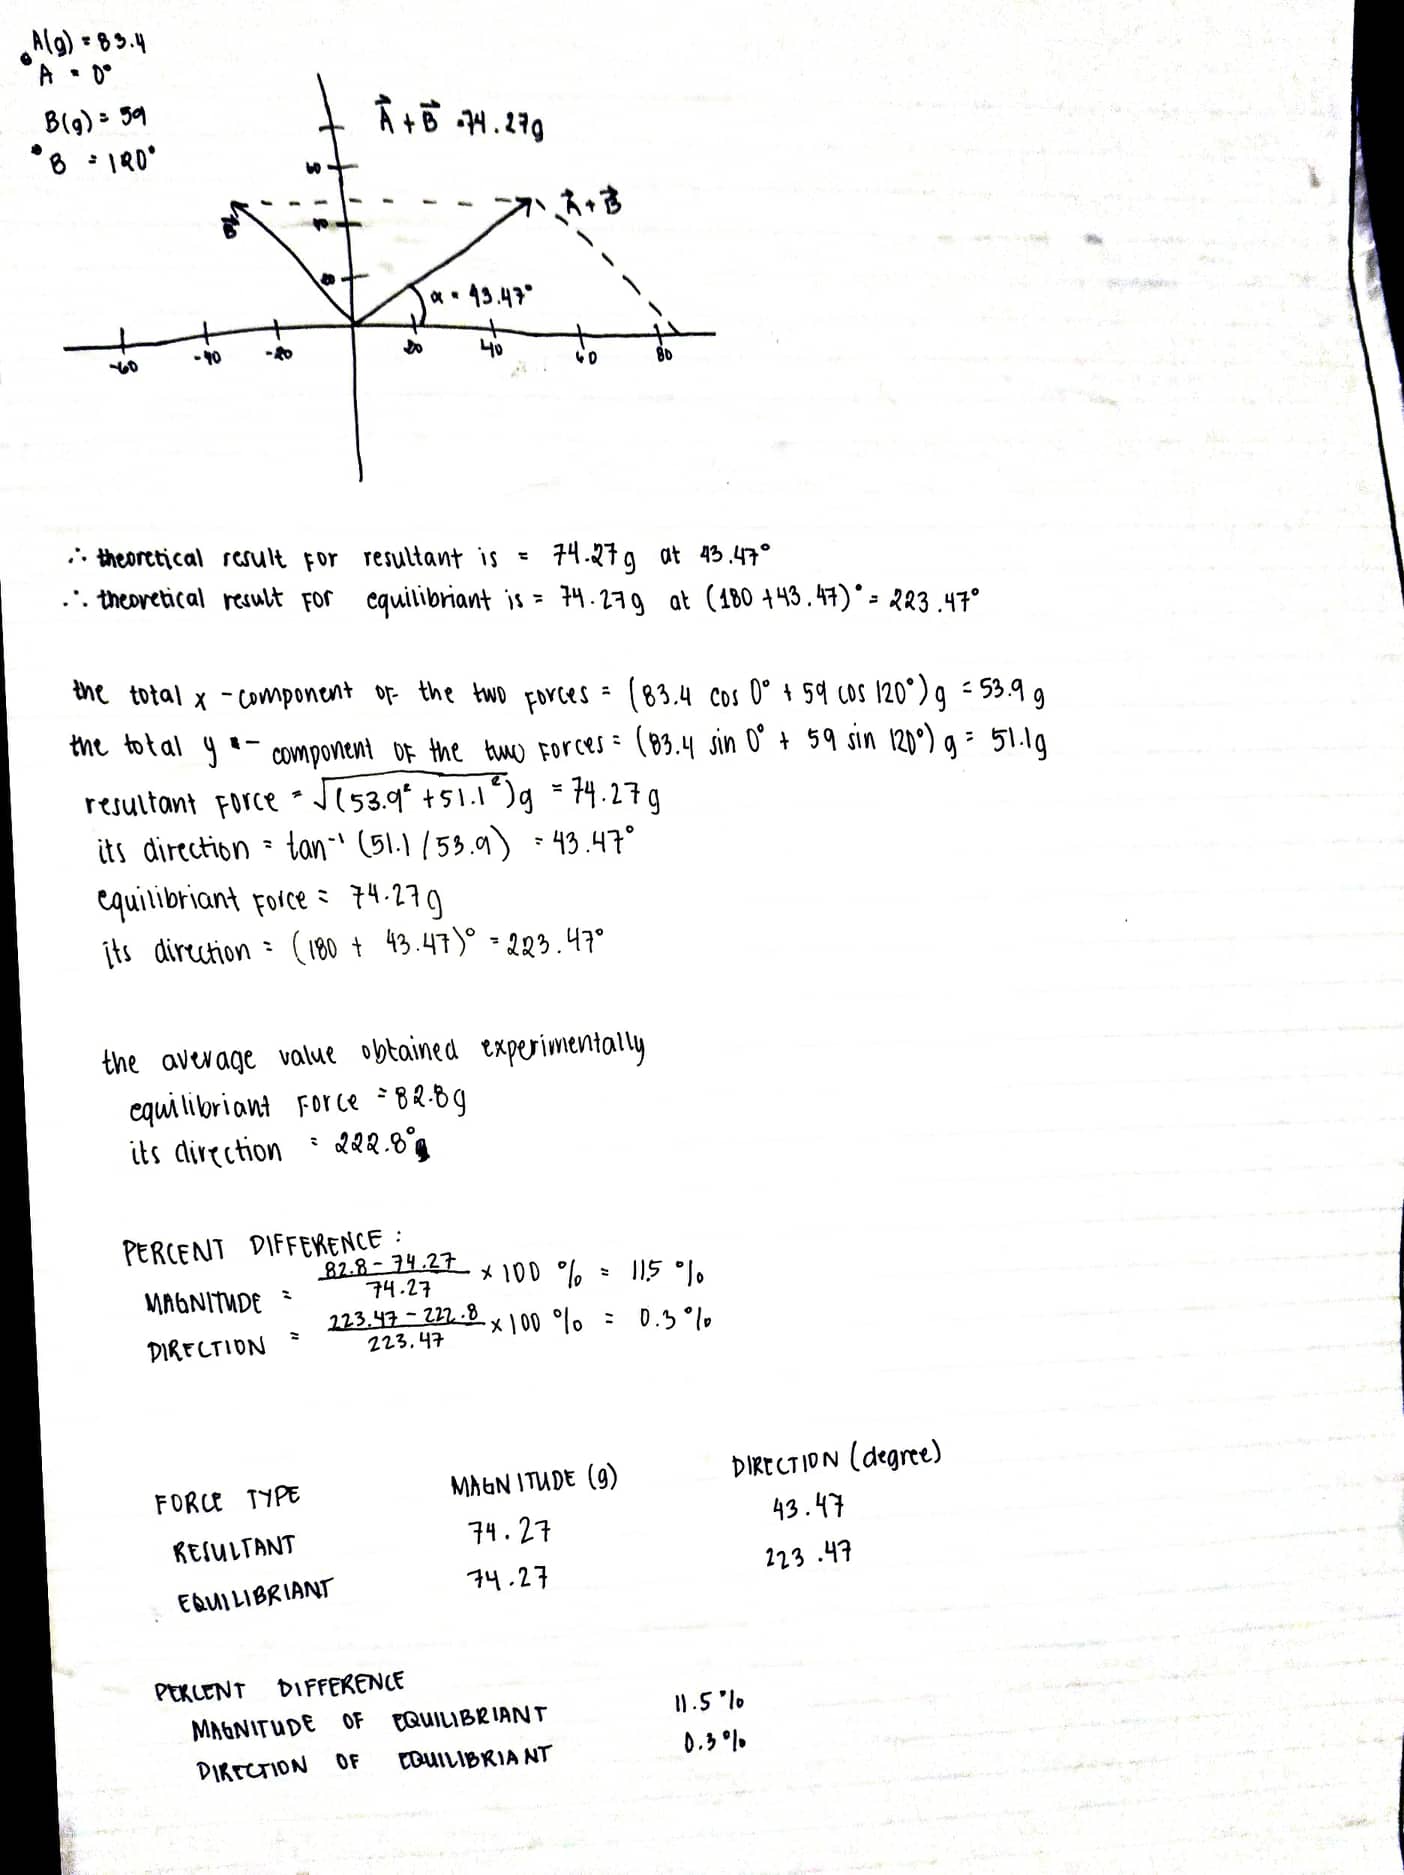 A(g) = 83.4
A = 0°
B(g) = 59
B = 120°
A⃗ + B⃗ = 74.27g
60
40
20
B⃗
A⃗ + B⃗
α = 43.47°
-60 -40 -20 20 40 60 80
∴ theoretical result for resultant is = 74.27g at 43.47°
∴ theoretical result for equilibriant is = 74.27g at (180 + 43.47)° = 223.47°
the total x - component of the two forces = (83.4 cos 0° + 59 cos 120°) g = 53.9 g
the total y - component of the two forces = (83.4 sin 0° + 59 sin 120°) g = 51.1g
resultant force = √(53.9² + 51.1²)g = 74.27g
its direction = tan⁻¹ (51.1 / 53.9) = 43.47°
equilibriant force = 74.27g
its direction = (180 + 43.47)° = 223.47°
the average value obtained experimentally
equilibriant force = 82.8g
its direction = 222.8°
PERCENT DIFFERENCE :
MAGNITUDE = 82.8 - 74.27 / 74.27 x 100 % = 11.5 %
DIRECTION = 223.47 - 222.8 / 223.47 x 100 % = 0.3 %
FORCE TYPE MAGNITUDE (g) DIRECTION (degree)
RESULTANT 74.27 43.47
EQUILIBRIANT 74.27 223.47
PERCENT DIFFERENCE
MAGNITUDE OF EQUILIBRIANT 11.5 %
DIRECTION OF EQUILIBRIANT 0.3 %